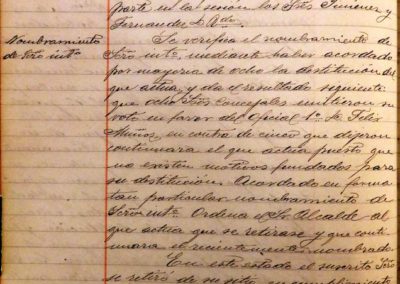 parte en la sesión los Sres Jimenez y
Fernandez L
Nombramiento
de Srio intº
Se verifica el nombramiento de
Srio intº, mediante haber acordado
por mayoria de ocho la destitución del
que actua, y da el resultado siguiente
que ocho Sres Concejales emitieron su
voto en favor del Oficial 1º D. Felix
Muñoz, en contra de cinco que dijeron
continuara el que actua puesto que
no existen motivos fundados para
su destitución. Acordado en forma
tan particular nombramiento de
Srio intº Ordena el Sr Alcalde al
que actua que se retirase y que conti
nuara el recientemente nombrado
En este estado el suscrito Srio
se retiró de su sitio, en cumplimiento